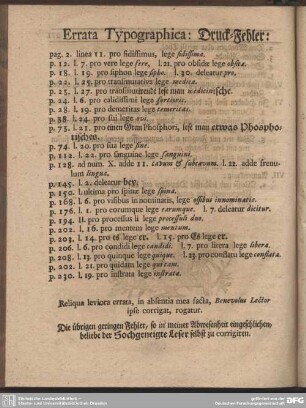 Errata Typographica: Druck-Fehler:
pag. 2. linea 11. pro fidissimus, lege fidissima.
p. 12. l. 7. pro vere lege fere, l. 21. pro obsidre lege obsta.
p. 18. l. 19. pro siphon lege sipho. l. 30. deleatur pre,
p. 22. l. 25. pro transmurativa lege medica.
p. 23. l. 27. pro transmutirende lese man medicinische.
p. 24. l. 6. pro calidissimi lege fortioris.
p. 28. l. 19. pro demeritas lege temeritas.
p. 38. l. 24. pro sui lege sua.
p. 75. l. 21. pro einen Gran Phosphori, lese man etwas Phosphorischen.
p. 74. l. 20. pro sua lege sine.
p. 112. l. 22. pro sanguine lege sanguini.
p. 128. ad num. X. adde 11. cavum & subcavum. l. 21. adde frenulum lingua.
p. 145. l. 2. deleatur bey.
p. 150. l. ultima pro spina lege spina.
p. 168. l. 6. pro visibus in nominatis, lege ossibus innominatis.
p. 176. l. 1. pro eorumque lege earumque. l. 7. deleatur dicitur.
p. 194. H. pro processus ii lege processus duo.
p. 202. l. 16. pro mentem lege mensum.
p. 203. l. 14. pro es lege er. l. 15. pro Es lege er.
p. 206. l. 6. pro condidi lege candidi. l. 7. pro litera lege libera.
p. 208. l. 12. pro quinque lege quique. l. 23. pro constatu lege constata.
p. 202. l. 21. pro quidam lege quidam.
p. 230. l. 19. pro instrata lege instrata.
Reliqua leviora errata, in absentia mea facta, Benevolus Lector
ipse corrigat, rogatur.
Die übrigen geringen Fehler, so in meiner Abwesenheit eingeschlichen,
beliebe der Hochgeneigte Leser selbst zu corrigiren.